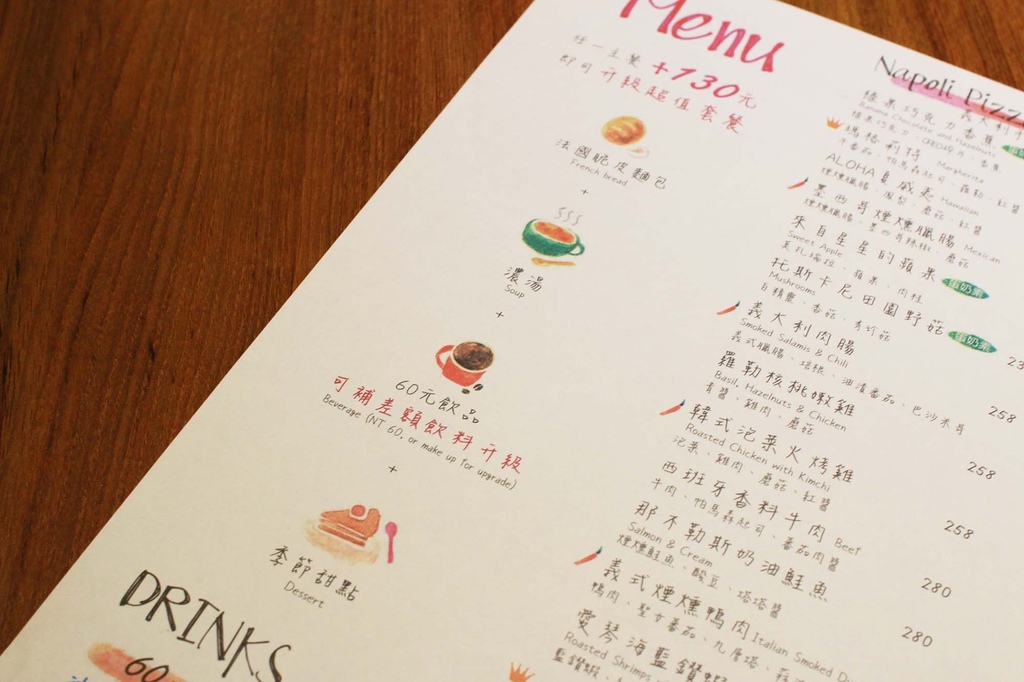 Menu
任一主餐 +130元
即可升級超值套餐
法國脆皮麵包
French bread
+
濃湯
Soup
+
60元飲品
可補差額飲料升級
Beverage (NT 60, or make up for upgrade)
+
季節甜點
Dessert
DRINKS
60
Napoli Pizz
榛果巧克力香蕉
Banana Chocolate and Hazelnuts
瑪格利特 Margherita
牛番茄、帕馬森起司、羅勒、紅醬
ALOHA夏威夷 Hawaiian
煙燻臘腸、鳳梨、蘑菇、紅醬
墨西哥煙燻臘腸 Mexican
煙燻臘腸、墨西哥辣椒、蘑菇
來自星星的蘋果
Sweet Apple
莫札瑞拉、蘋果、肉桂
托斯卡尼田園野菇
Mushrooms
白精靈、香菇、秀珍菇
義大利肉腸
Smoked Salamis & Chili
義式臘腸、培根、油漬番茄、巴沙米哥
258
羅勒核桃嫩雞
Basil, Hazelnuts & Chicken
青醬、雞肉、蘑菇
258
韓式泡菜火烤雞
Roasted Chicken with Kimchi
泡菜、雞肉、蘑菇、紅醬
258
西班牙香料牛肉 Beef
牛肉、帕馬森起司、番茄肉醬
280
那不勒斯奶油鮭魚
Salmon & Cream
煙燻鮭魚、酸豆、塔塔醬
280
義式煙燻鴨肉 Italian Smoked D
鴨肉、聖女番茄、九層塔
愛琴海藍鑽蝦
Roasted Shrimps
藍鑽蝦